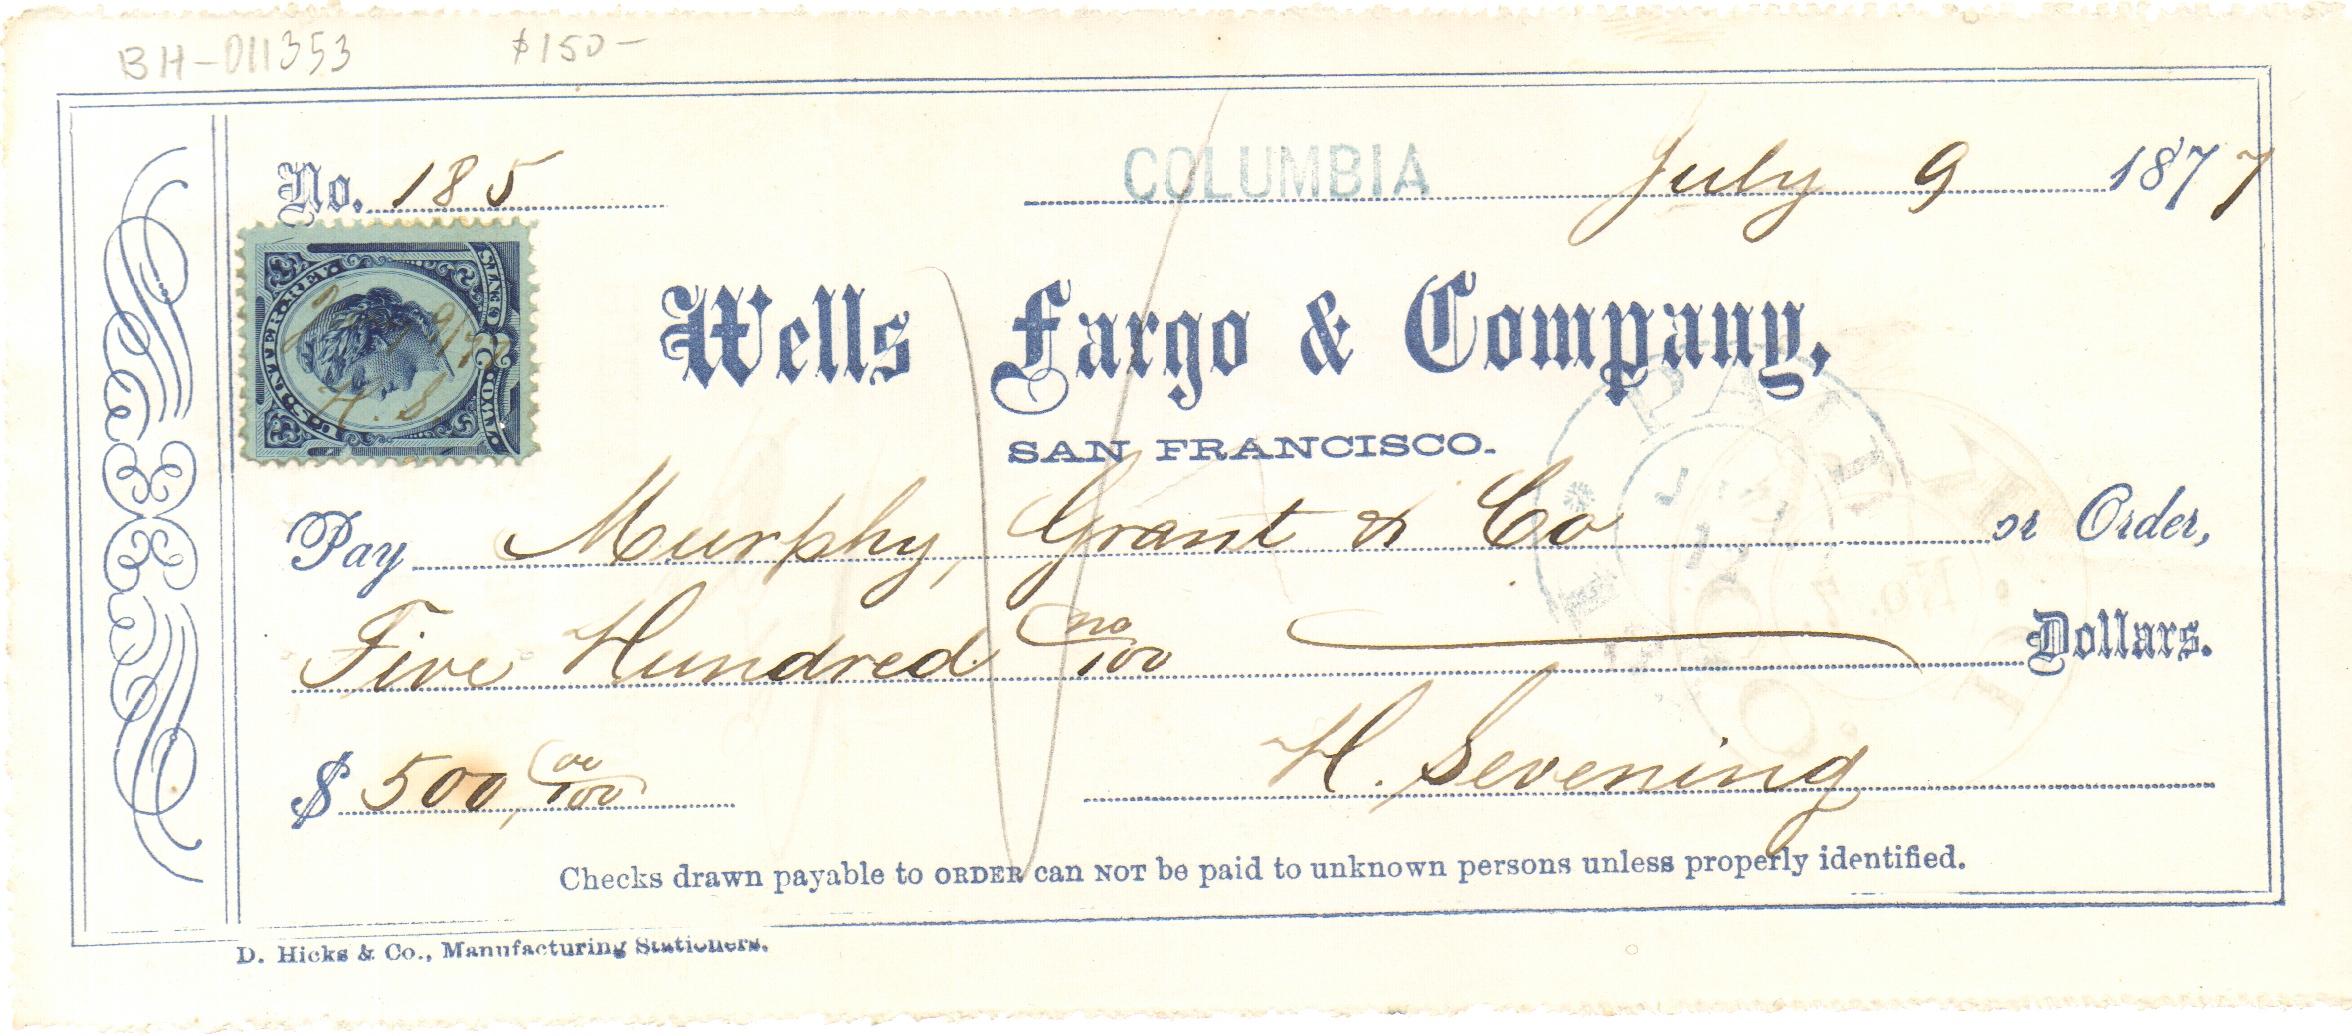 BH-011353 $150-
No. 185 COLUMBIA July 9 1877
U.S. INTER. REV.
July 9/77
H. S.
Wells Fargo & Company,
SAN FRANCISCO.
PAID
Pay Murphy, Grant & Co or Order,
Five Hundred no/100 Dollars.
$ 500, 00/100 H. Sevening
Checks drawn payable to ORDER can NOT be paid to unknown persons unless properly identified.
D. Hicks & Co., Manufacturing Stationers.